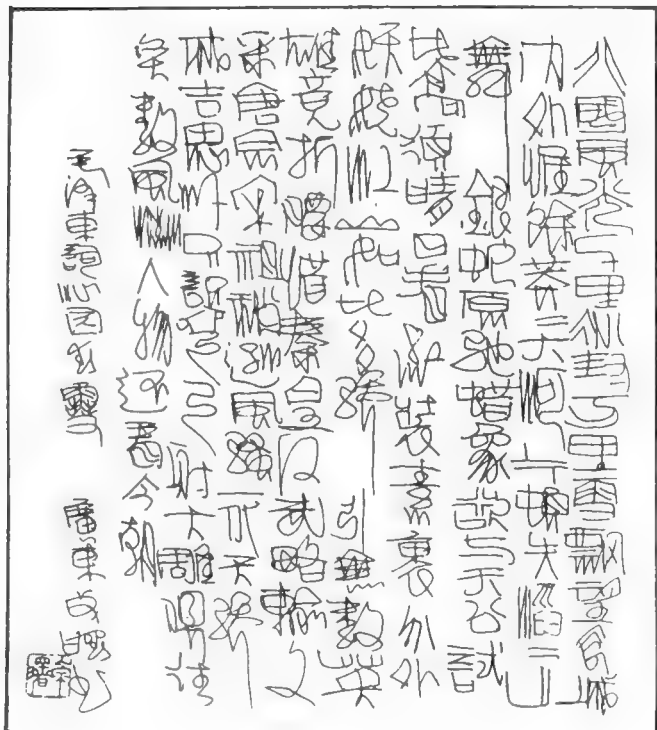 北國風光千里冰封万里雪飄望長城
内外惟餘莽〻大河上下頓失滔〻山
舞銀蛇原馳蜡象欲与天公試
比高須晴日看紅裝素裹分外
妖嬈江山如此多嬌引無數英
雄竞折腰惜秦皇汉武略輸文
采唐宗宋祖稍遜風騷一代天骄
成吉思汗只識弯弓射大雕俱往
矣數風流人物还看今朝
毛澤東詞沁园春雪 廣東